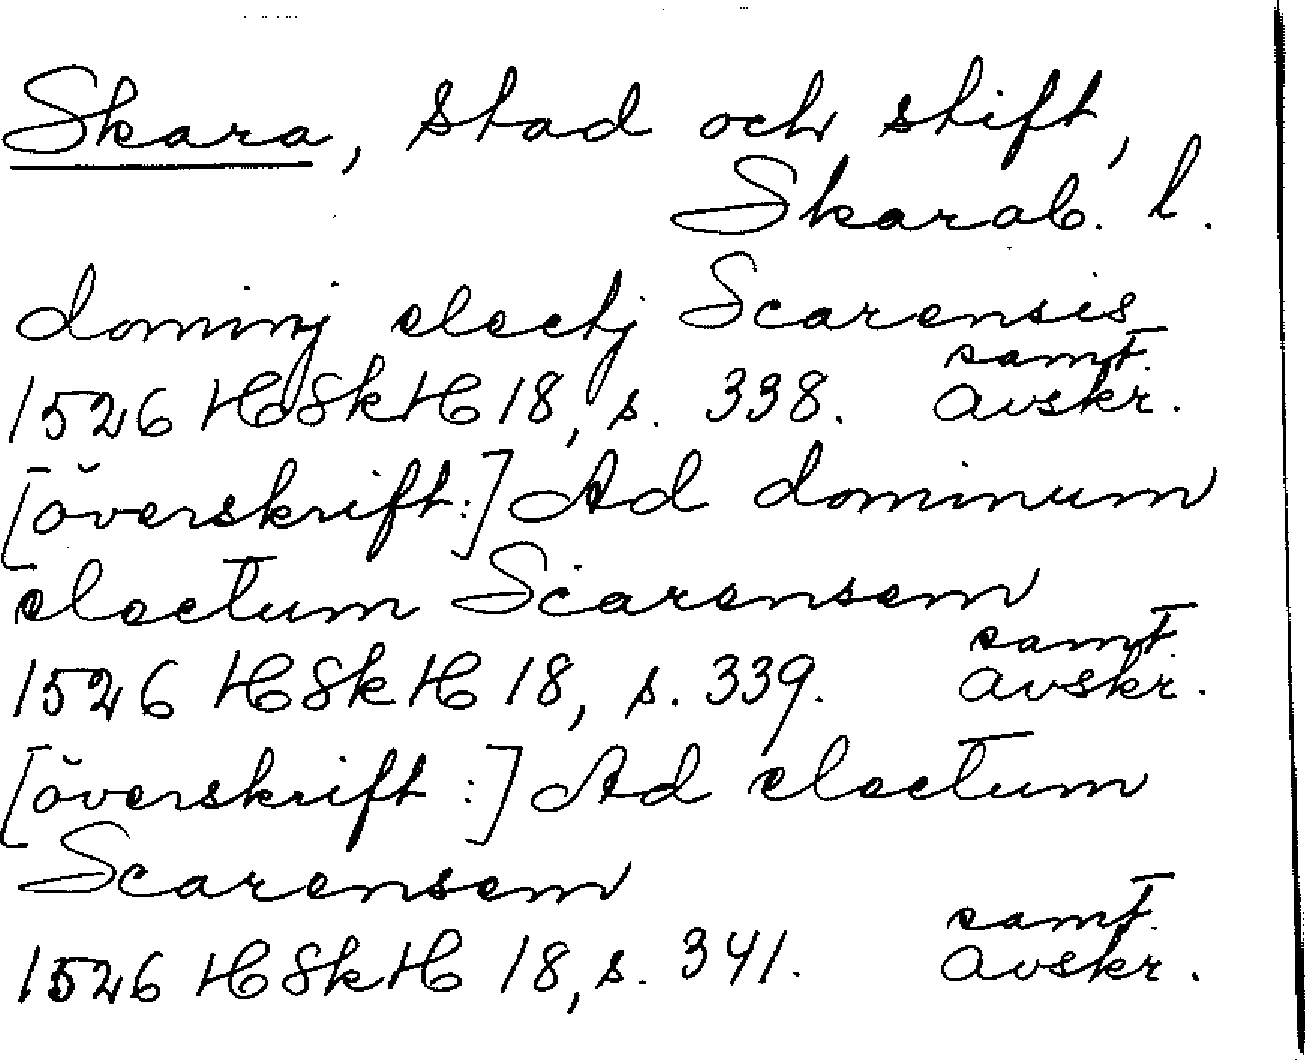 Skara, stad och stift,
Skarab. l.
dominj electj Scarensis
samt.
1526 HSkH 18, s. 338. avskr.
[överskrift:] Ad dominum
electum Scarensem
samt.
1526 HSkH 18, s. 339. avskr.
[överskrift:] Ad electum
Scarensem
samt.
1526 HSkH 18, s. 341. avskr.